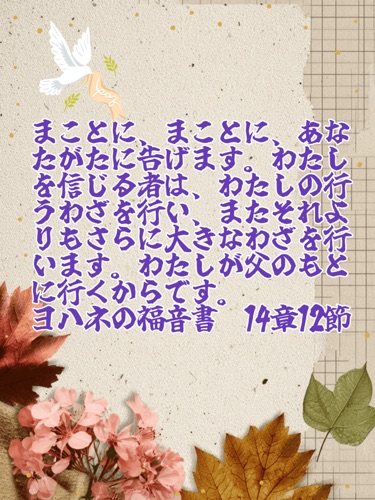 まことに、まことに、あな
たがたに告げます。わたし
を信じる者は、わたしの行
うわざを行い、またそれよ
りもさらに大きなわざを行
います。わたしが父のもと
に行くからです。
ヨハネの福音書　14章12節